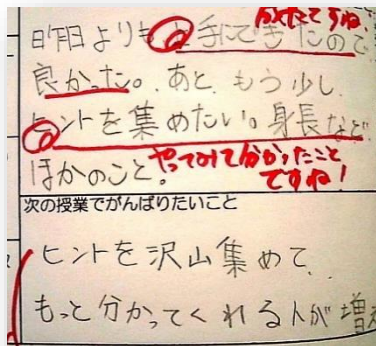 がんばったですね。
昨日よりも上手にできたので
良かった。あと、もう少し
ヒントを集めたい。身長など
ほかのこと。
やってみて分かったこと
ですね!
次の授業でがんばりたいこと
ヒントを沢山集めて、
もっと分かってくれる人が増え